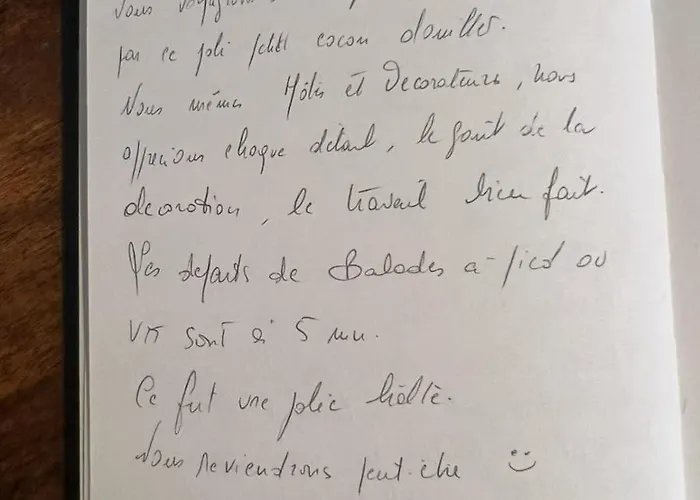 Vous
par ce joli petit cocon douillet.
Nous mêmes Hôtes et Decorateurs, nous
apprecions chaque détail, le goût de la
decoration, le travail bien fait.
Les departs de Balades a-pied ou
VTT sont à 5 mn.
Ce fut une jolie halte.
Nous reviendrons peut-être :)